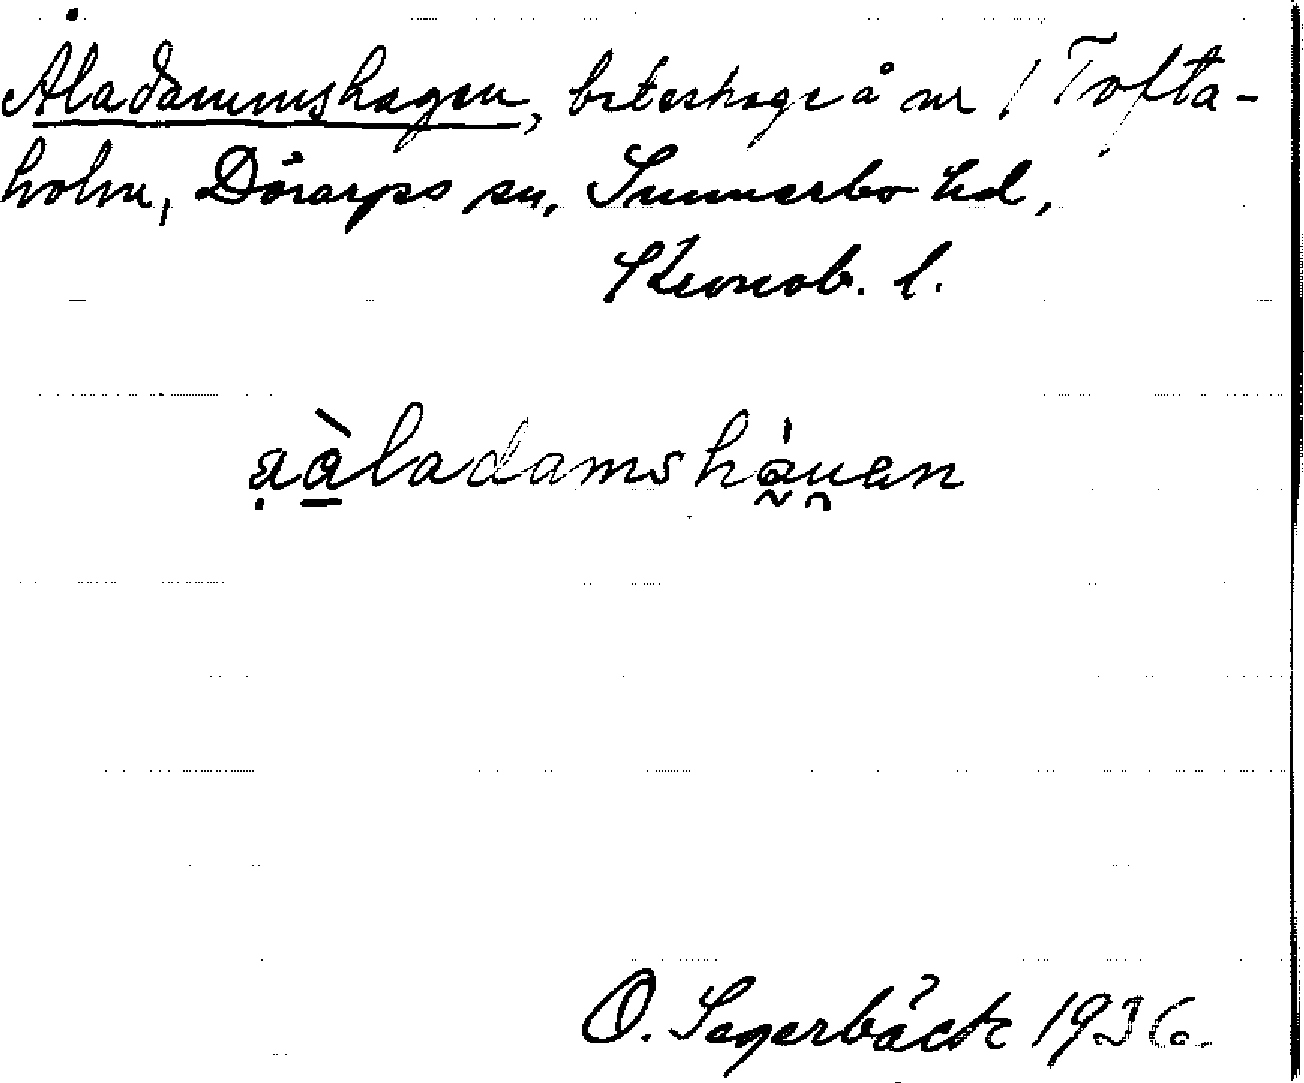 Åladammshagen, beteshage å nr 1 Tofta-
holm, Dörarps sn, Sunnerbo hd,
Kronob. l.
a̤àladamshàu̯en
O. Segerbäck 1936.